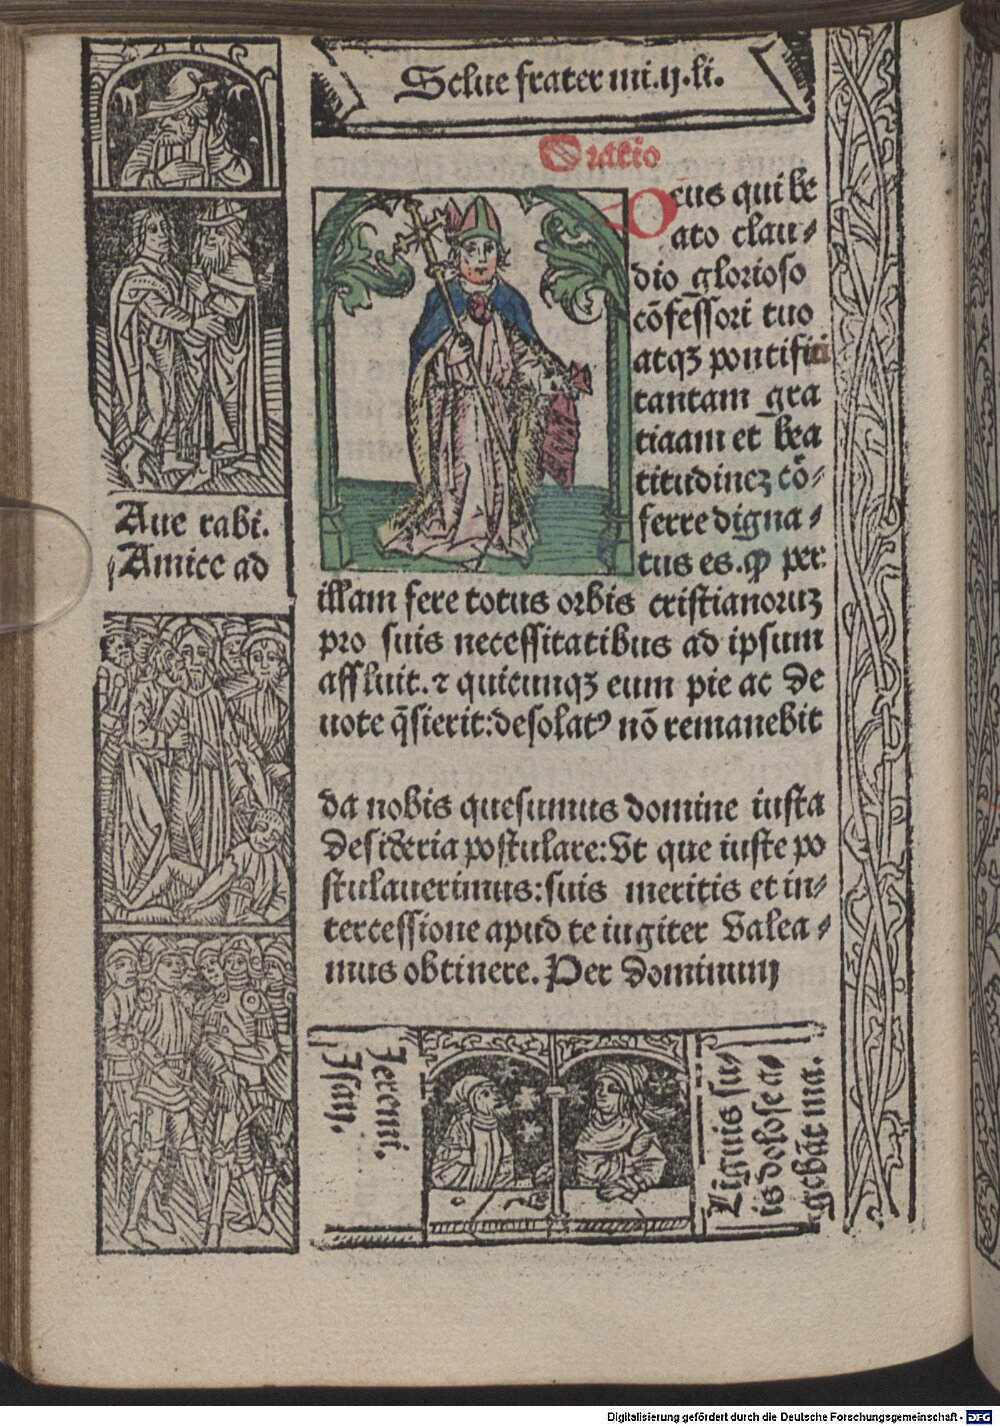 Sclue frater iiii.ij.li.
Oratio
Deus qui be
ato clau⸗
dio glorioso
cōfessori tuo
atqꝫ pontifici
tantam gra
tiaam et bea
titudineꝫ cō⸗
ferre digna⸗
tus es. ꝙ per
illam fere totus orbis cristianoruꝫ
pro suis necessitatibus ad ipsum
affluit. ⁊ quicunqꝫ eum pie ac de
uote q̄sierit: desolatꝰ nō remanebit
da nobis quesumus domine iusta
desideria postulare: Vt que iuste po
stulauerimus: suis meritis et in⸗
tercessione apud te iugiter valea⸗
mus obtinere. Per dominum
Aue rabi.
Amice ad
Jeremi.
Jsay.
Liguis su⸗
is dolose a⸗
gebāt ma.
Digitalisierung gefördert durch die Deutsche Forschungsgemeinschaft - DFG